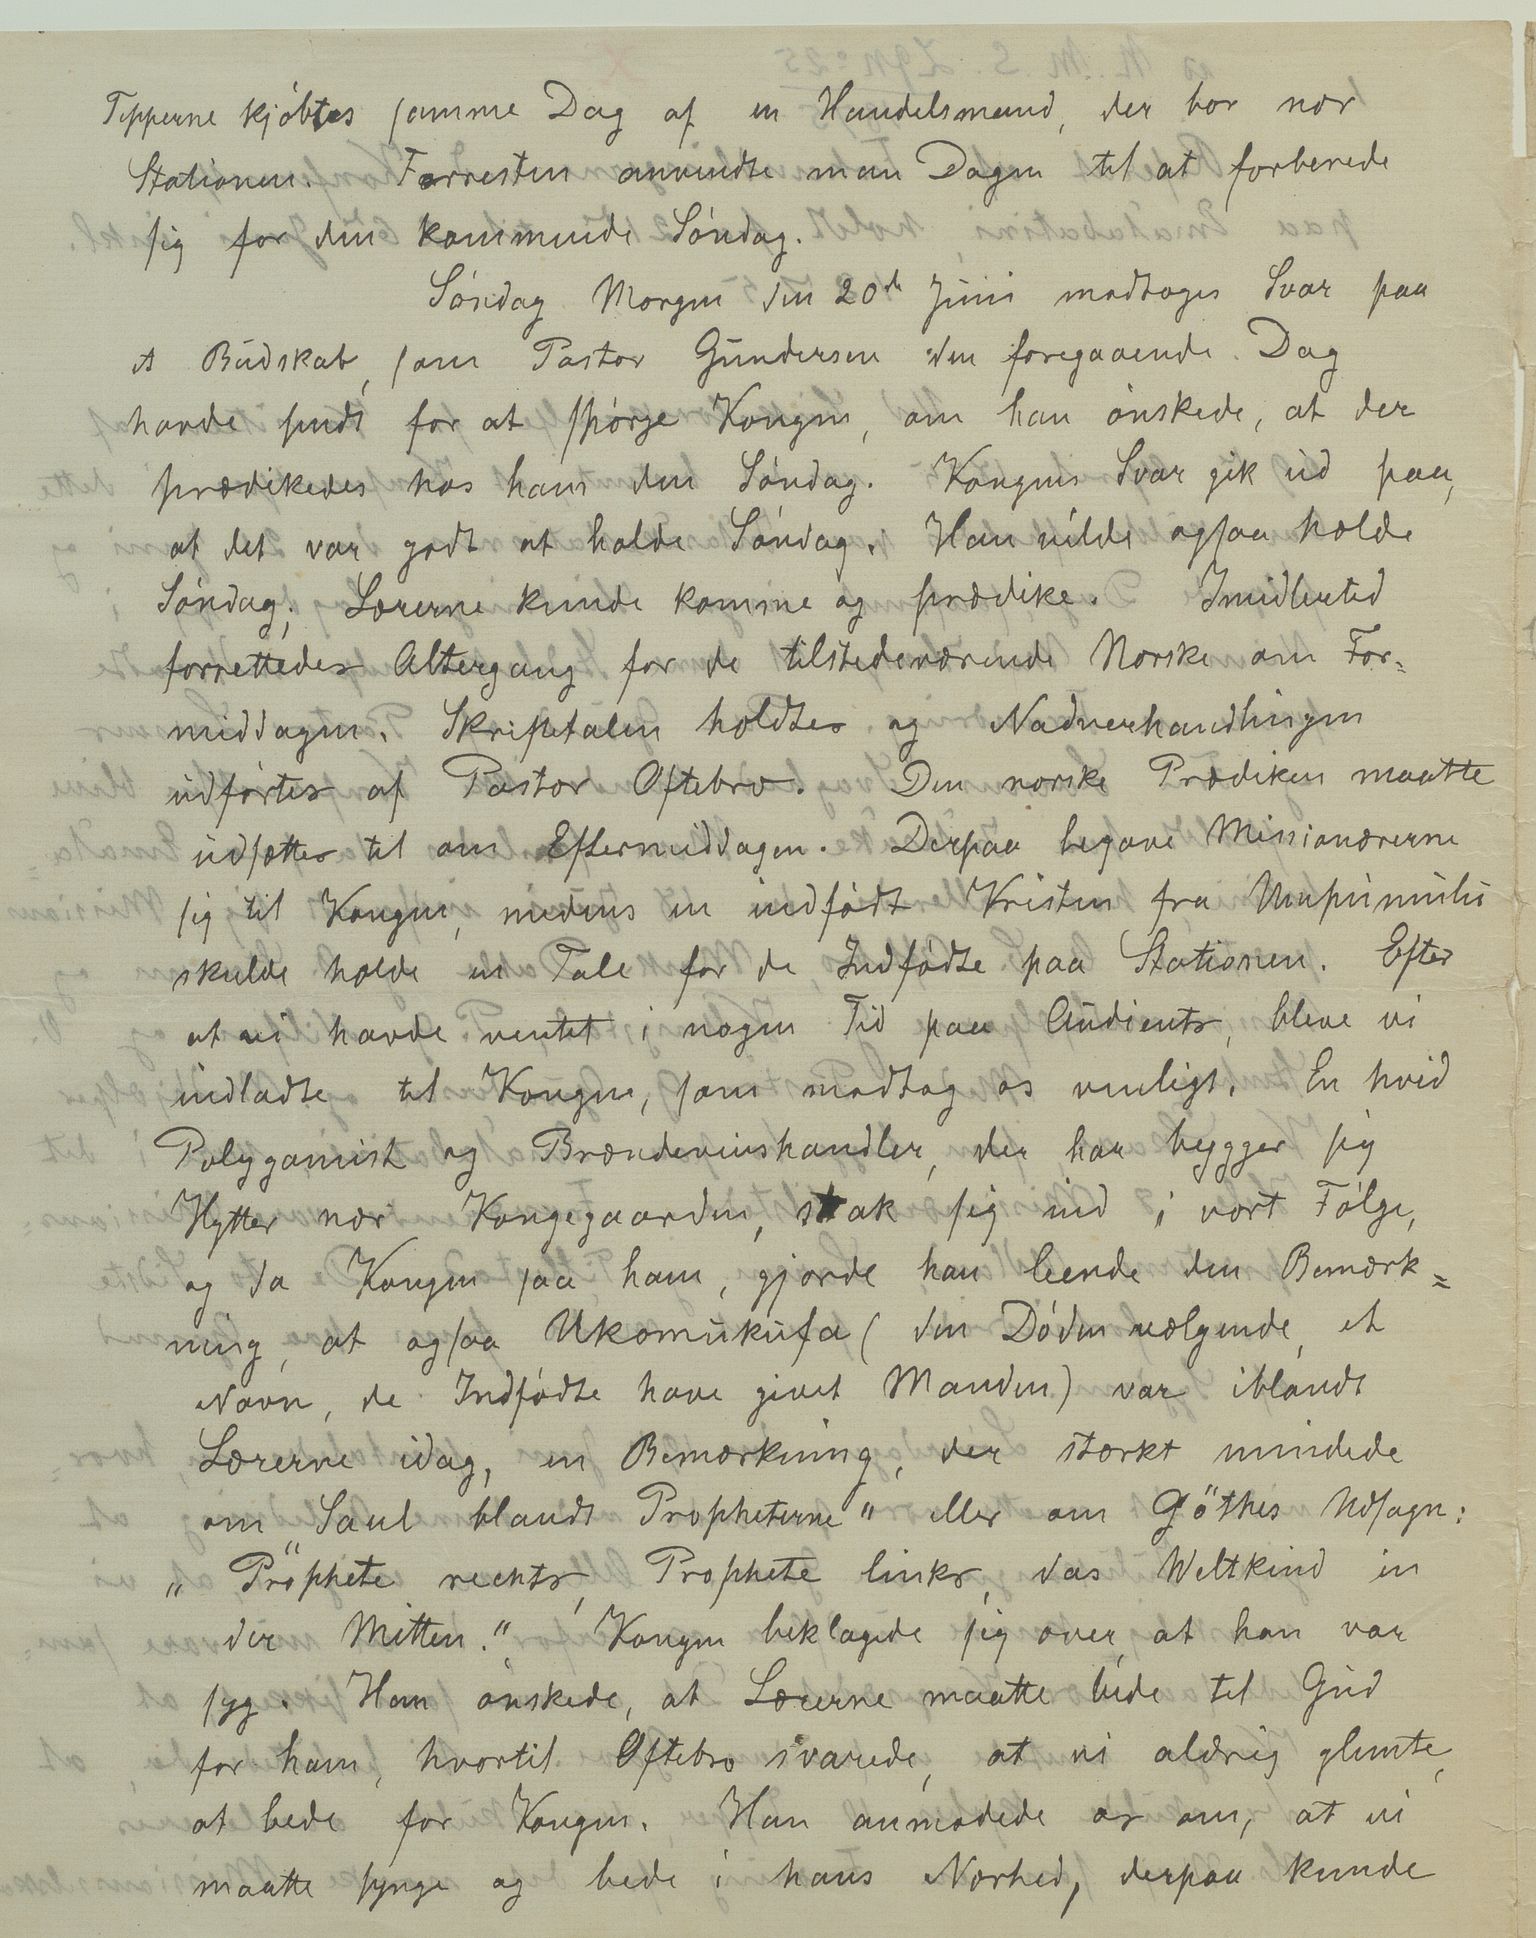 Tepperne kjöbtes samme Dag af en Handelsmand, der bor nær
Stationen. Forresten anvendte man Dagen til at forberede
sig for den kommende Söndag.
Söndag Morgen den 20de Juni modtoges Svar paa
et Budskab, som Pastor Gundersen den foregaaende Dag
havde sendt for at spörge Kongen, om han önskede, at der
prædikedes hos ham den Söndag. Kongens Svar gik ud paa,
at det var godt at holde Söndag. Han vilde ogsaa holde
Söndag; Lærerne kunde komme og prædike. Imidlertid
forrettedes Altergang for de tilstedeværende Norske om For=
middagen. Skriftetalen holdtes og Nadverhandlingen
udförtes af Pastor Oftebro. Den norske Prædiken maatte
udsættes til om Eftermiddagen. Derpaa begave Missionærerne
sig til Kongen, medens en indfödt Kristen fra Umpumulu
skulde holde en Tale for de Indfödte paa Stationen. Efter
at vi havde ventet i nogen Tid paa Audients, bleve vi
indladte til Kongen, som modtog os venligt. En hvid
Polygamist og Brændevinshandler, der har bygget sig
Hytter nær Kongegaarden, stak sig ind i vort Fölge,
og da Kongen saa ham, gjorde han leende den Bemærk=
ning, at ogsaa Ukomukufa (den Döden vælgende, et
Navn, de Indfödte have givet Manden) var iblandt
Lærerne idag, en Bemærkning, der stærkt mindede
om Saul blandt Propheterne" eller om Göthes Udsagn:
„Prophete rechts, Prophete links, das Weltkind in
der Mitten." Kongen beklagede sig over, at han var
syg. Han önskede, at Lærerne maatte bede til Gud
for ham, hvortil Oftebro svarede, at vi aldrig glemte,
at bede for Kongen. Han anmodede os om, at vi
maatte synge og bede i hans Nærhed, derpaa kunde